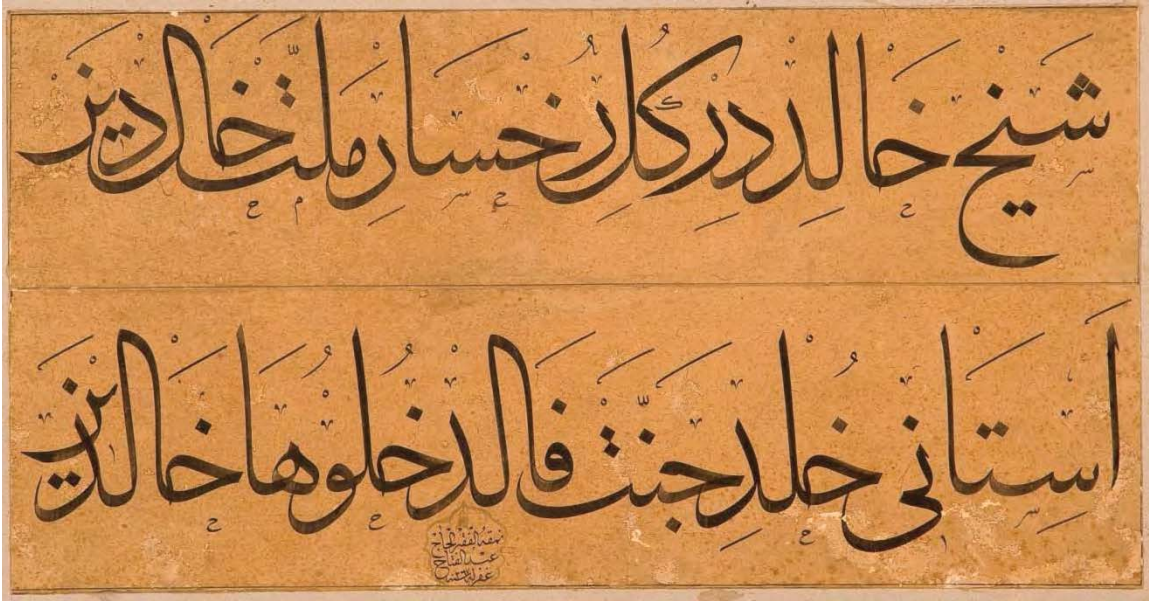 شيخ خالددر كل رخسار ملت خال دين
استانى خلد جنت فالدخلوها خالدين
نمقه الفقير الحاج
عبد الفتاح
غفر له